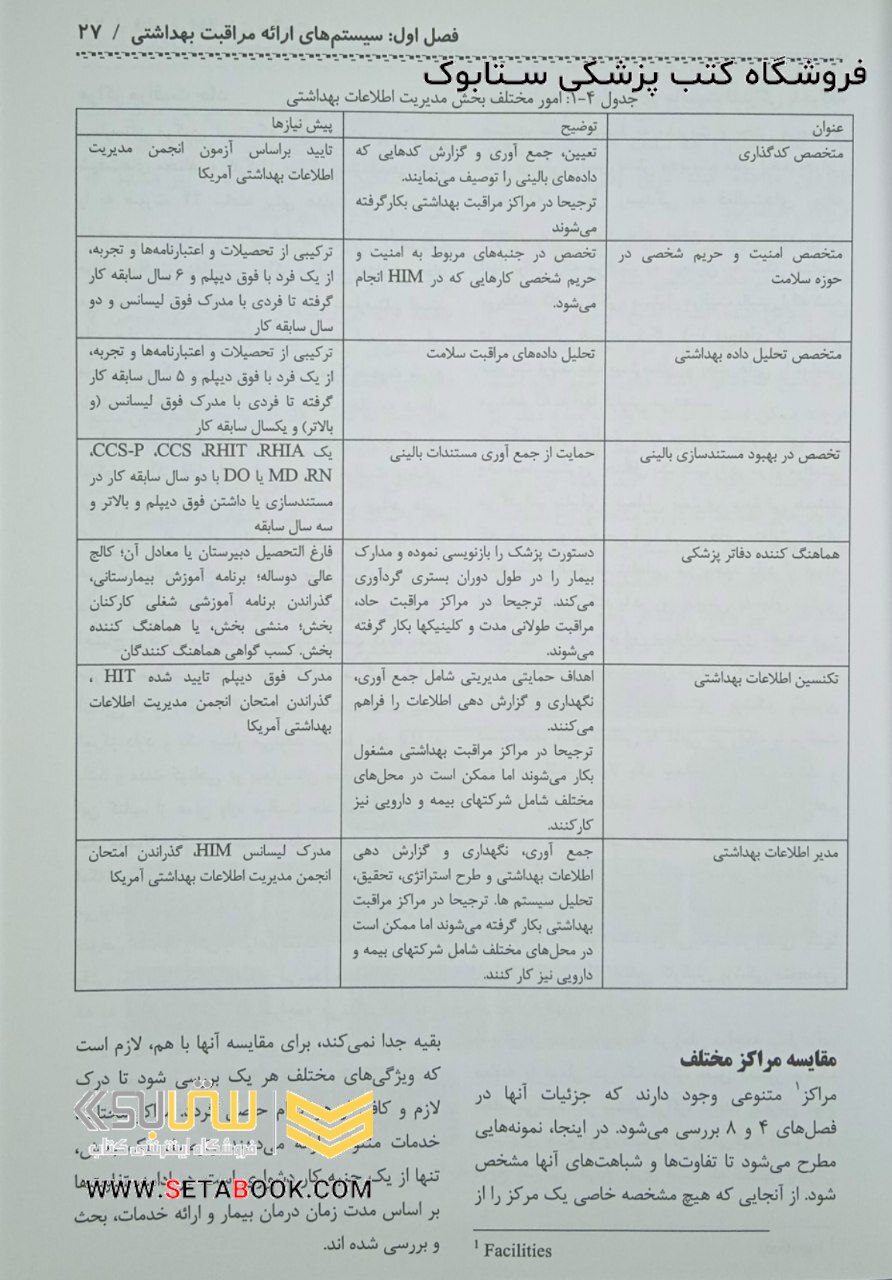 فصل اول: سیستم‌های ارائه مراقبت بهداشتی / ۲۷
فروشگاه کتب پزشکی ستابوک
جدول ۴-۱: امور مختلف بخش مدیریت اطلاعات بهداشتی
عنوان
توضیح
پیش نیازها
متخصص کدگذاری
تعیین، جمع آوری و گزارش کدهایی که
داده‌های بالینی را توصیف می‌نمایند.
ترجیحا در مراکز مراقبت بهداشتی بکارگرفته
می‌شوند
تایید براساس آزمون انجمن مدیریت
اطلاعات بهداشتی آمریکا
متخصص امنیت و حریم شخصی در
حوزه سلامت
تخصص در جنبه‌های مربوط به امنیت و
حریم شخصی کارهایی که در HIM انجام
می‌شود.
ترکیبی از تحصیلات و اعتبارنامه‌ها و تجربه،
از یک فرد با فوق دیپلم و ۶ سال سابقه کار
گرفته تا فردی با مدرک فوق لیسانس و دو
سال سابقه کار
متخصص تحلیل داده بهداشتی
تحلیل داده‌های مراقبت سلامت
ترکیبی از تحصیلات و اعتبارنامه‌ها و تجربه،
از یک فرد با فوق دیپلم و ۵ سال سابقه کار
گرفته تا فردی با مدرک فوق لیسانس (و
بالاتر) و یکسال سابقه کار
تخصص در بهبود مستندسازی بالینی
حمایت از جمع آوری مستندات بالینی
یک RHIA، RHIT، CCS، CCS-P،
RN، MD یا DO با دو سال سابقه کار در
مستندسازی یا داشتن فوق دیپلم و بالاتر و
سه سال سابقه
هماهنگ کننده دفاتر پزشکی
دستورت پزشک را بازنویسی نموده و مدارک
بیمار را در طول دوران بستری گردآوری
می‌کند. ترجیحا در مراکز مراقبت حاد،
مراقبت طولانی مدت و کلینیکها بکار گرفته
می‌شوند.
فارغ التحصیل دبیرستان یا معادل آن؛ کالج
عالی دوساله؛ برنامه آموزش بیمارستانی،
گذراندن برنامه آموزشی شغلی کارکنان
بخش؛ منشی بخش، یا هماهنگ کننده
بخش. کسب گواهی هماهنگ کنندگان
تکنسین اطلاعات بهداشتی
اهداف حمایتی مدیریتی شامل جمع آوری،
نگهداری و گزارش دهی اطلاعات را فراهم
می‌کنند.
ترجیحا در مراکز مراقبت بهداشتی مشغول
بکار می‌شوند اما ممکن است در محل‌های
مختلف شامل شرکتهای بیمه و دارویی نیز
کارکنند.
مدرک فوق دیپلم تایید شده HIT ،
گذراندن امتحان انجمن مدیریت اطلاعات
بهداشتی آمریکا
مدیر اطلاعات بهداشتی
جمع آوری، نگهداری و گزارش دهی
اطلاعات بهداشتی و طرح استراتژی، تحقیق،
تحلیل سیستم ها. ترجیحا در مراکز مراقبت
بهداشتی بکار گرفته می‌شوند اما ممکن است
در محل‌های مختلف شامل شرکتهای بیمه و
دارویی نیز کار کنند.
مدرک لیسانس HIM، گذراندن امتحان
انجمن مدیریت اطلاعات بهداشتی آمریکا
مقایسه مراکز مختلف
مراکز¹ متنوعی وجود دارند که جزئیات آنها در
فصل‌های ۴ و ۸ بررسی می‌شود. در اینجا، نمونه‌هایی
مطرح می‌شود تا تفاوت‌ها و شباهت‌های آنها مشخص
شود. از آنجایی که هیچ مشخصه خاصی یک مرکز را از
¹ Facilities
بقیه جدا نمی‌کند، برای مقایسه آنها با هم، لازم است
که ویژگی‌های مختلف هر یک بررسی شود تا درک
لازم و
خدمات
تنها از یک
بر اساس مدت زمان درمان بیمار و ارائه خدمات، بحث
و بررسی شده اند.
ستابوک
فروشگاه اینترنتی کتاب
WWW.SETABOOK.COM